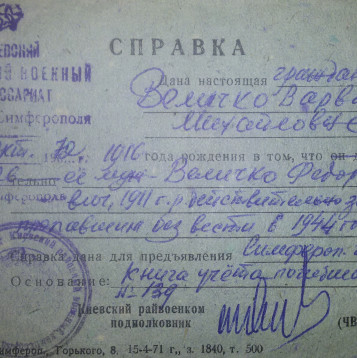 ЕВСКИЙ
Й ВОЕННЫЙ
ССАРИАТ
Симферополя
СПРАВКА
Дана настоящая граждан
Величко Варв
Михайловне
окт. 72 1916 года рождения в том, что он д
ее муж- Величко Федор
вич, 1911 г.р. действительно з
пропавшим без вести в 1944 го
Справка дана для предъявления Симфероп.
Основание: книга учёта погибш
№-159
Киевский райвоенком
подполковник
(ЧВ
имфероп., Горького, 8, 15-4-71 г., з. 1840, т. 500